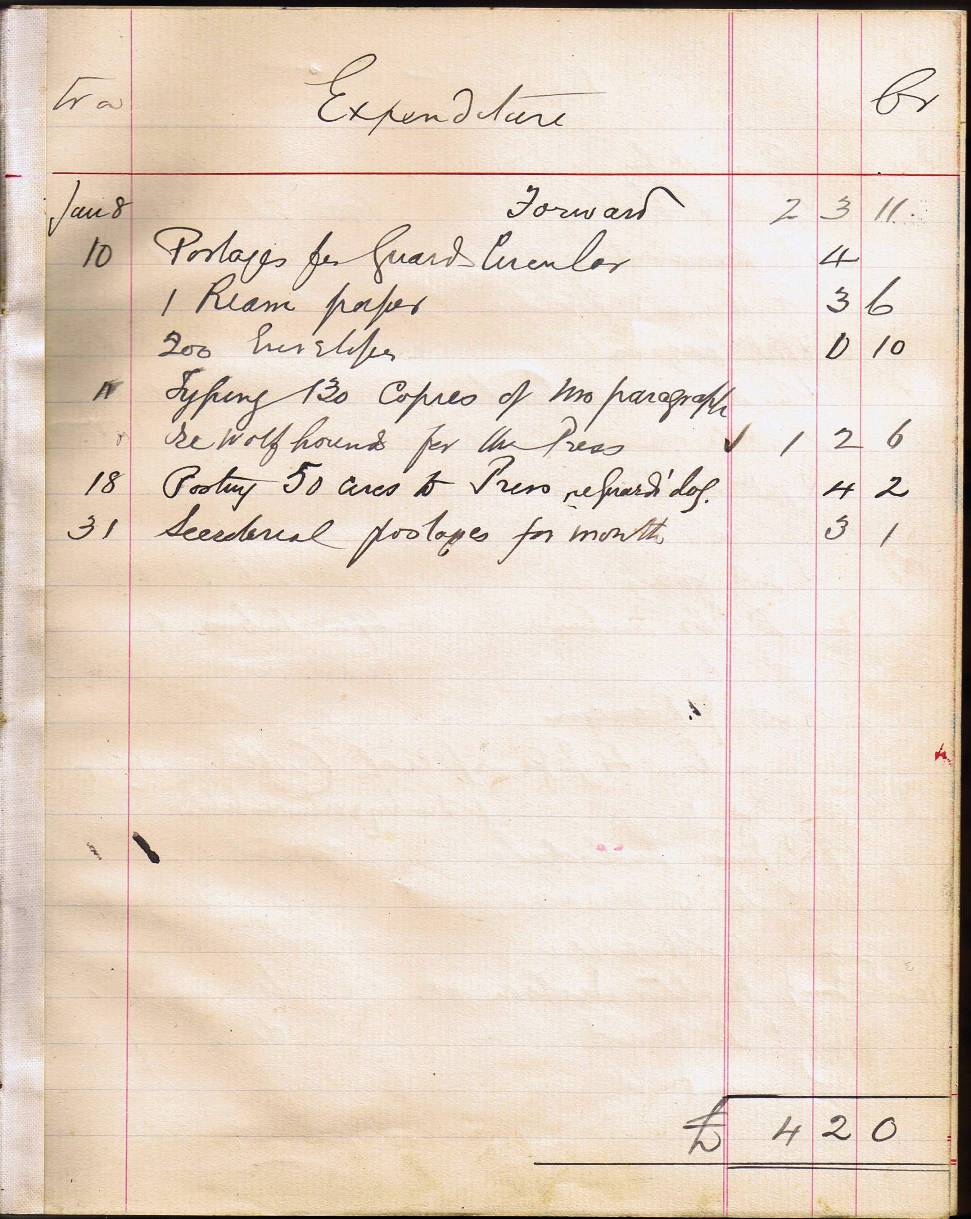 Expenditure Cr
Jan 8 Forward 2 3 11
10 Postages for Guards Circular 4
1 Ream paper 3 6
200 Envelopes 0 10
Typing 130 Copies of paragraph
re Wolfhounds for the Press ✓ 1 2 6
18 Posting 50 to Press re Guards' dog. 4 2
31 Secreterial postages for month 3 1
£ 4 2 0